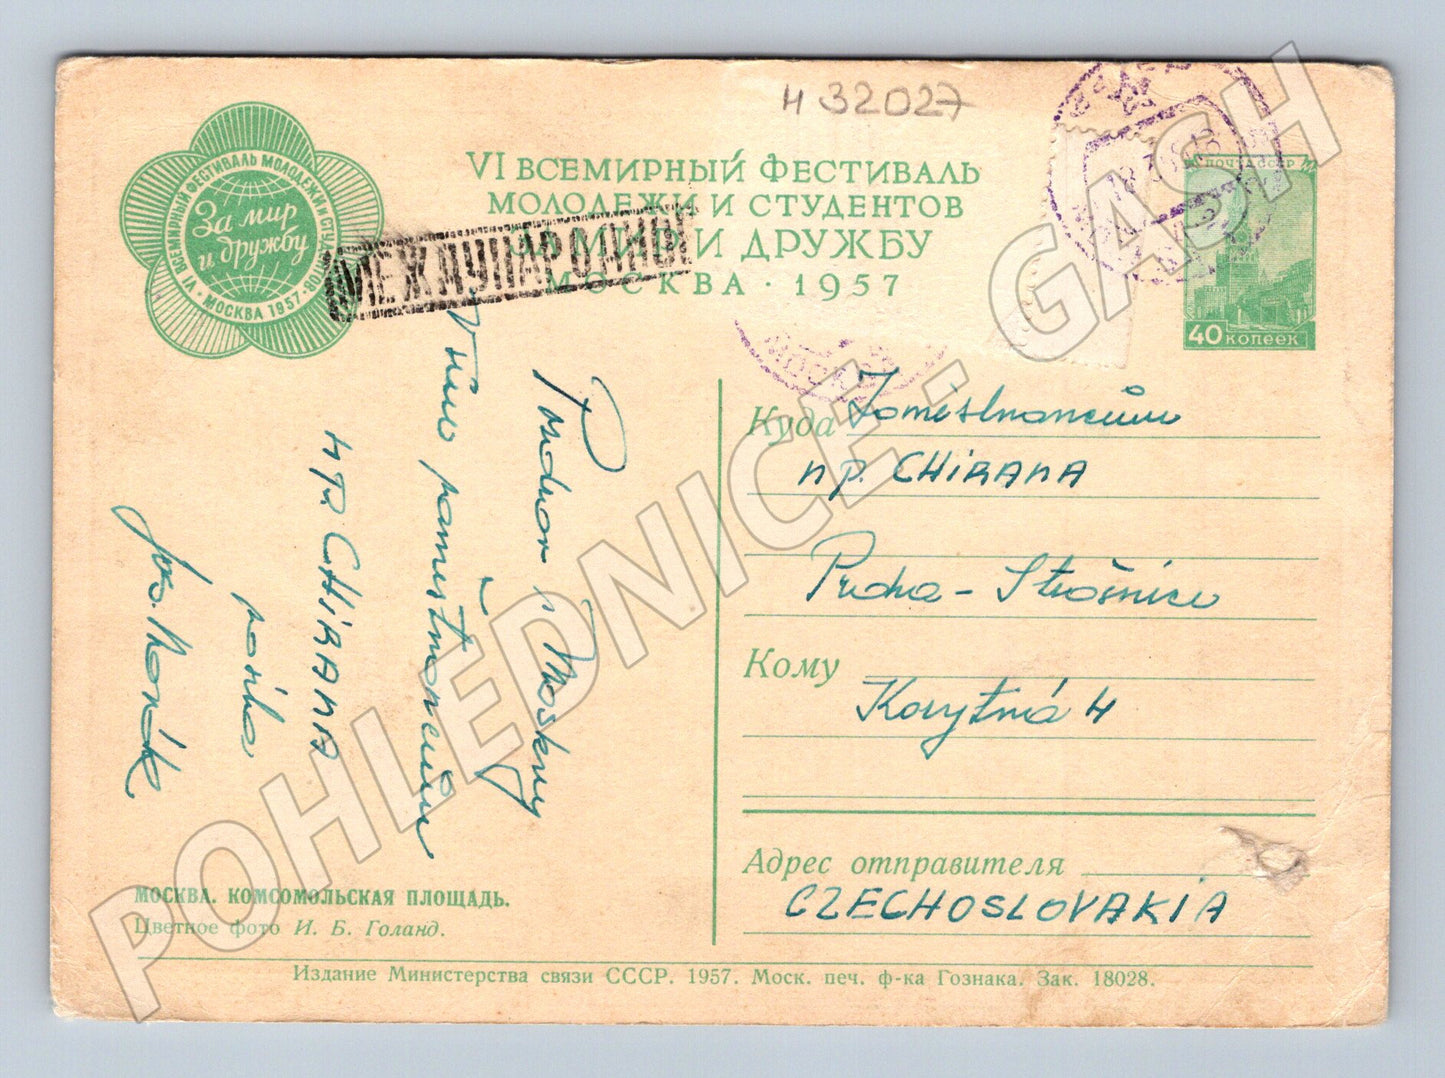 н 32027
VI ВСЕМИРНЫЙ ФЕСТИВАЛЬ
МОЛОДЕЖИ И СТУДЕНТОВ
ЗА МИР И ДРУЖБУ
МОСКВА · 1957
VI ВСЕМИРНЫЙ ФЕСТИВАЛЬ МОЛОДЕЖИ И СТУДЕНТОВ · МОСКВА 1957 ·
За мир
и дружбу
МЕЖДУНАРОДНОЕ
ПОЧТА СССР
40 КОПЕЕК
МОСКВА
Pozdrav z Moskvy
všem zaměstnancům
np. CHIRANA
posílá
Jos. Novák
Куда Zaměstnancům
np. CHIRANA
Praha - Strašnice
Кому
Korytná 4
Адрес отправителя
CZECHOSLOVAKIA
МОСКВА. КОМСОМОЛЬСКАЯ ПЛОЩАДЬ.
Цветное фото И. Б. Голанд.
Издание Министерства связи СССР. 1957. Моск. печ. ф-ка Гознака. Зак. 18028.
POHLEDNICE - GASH